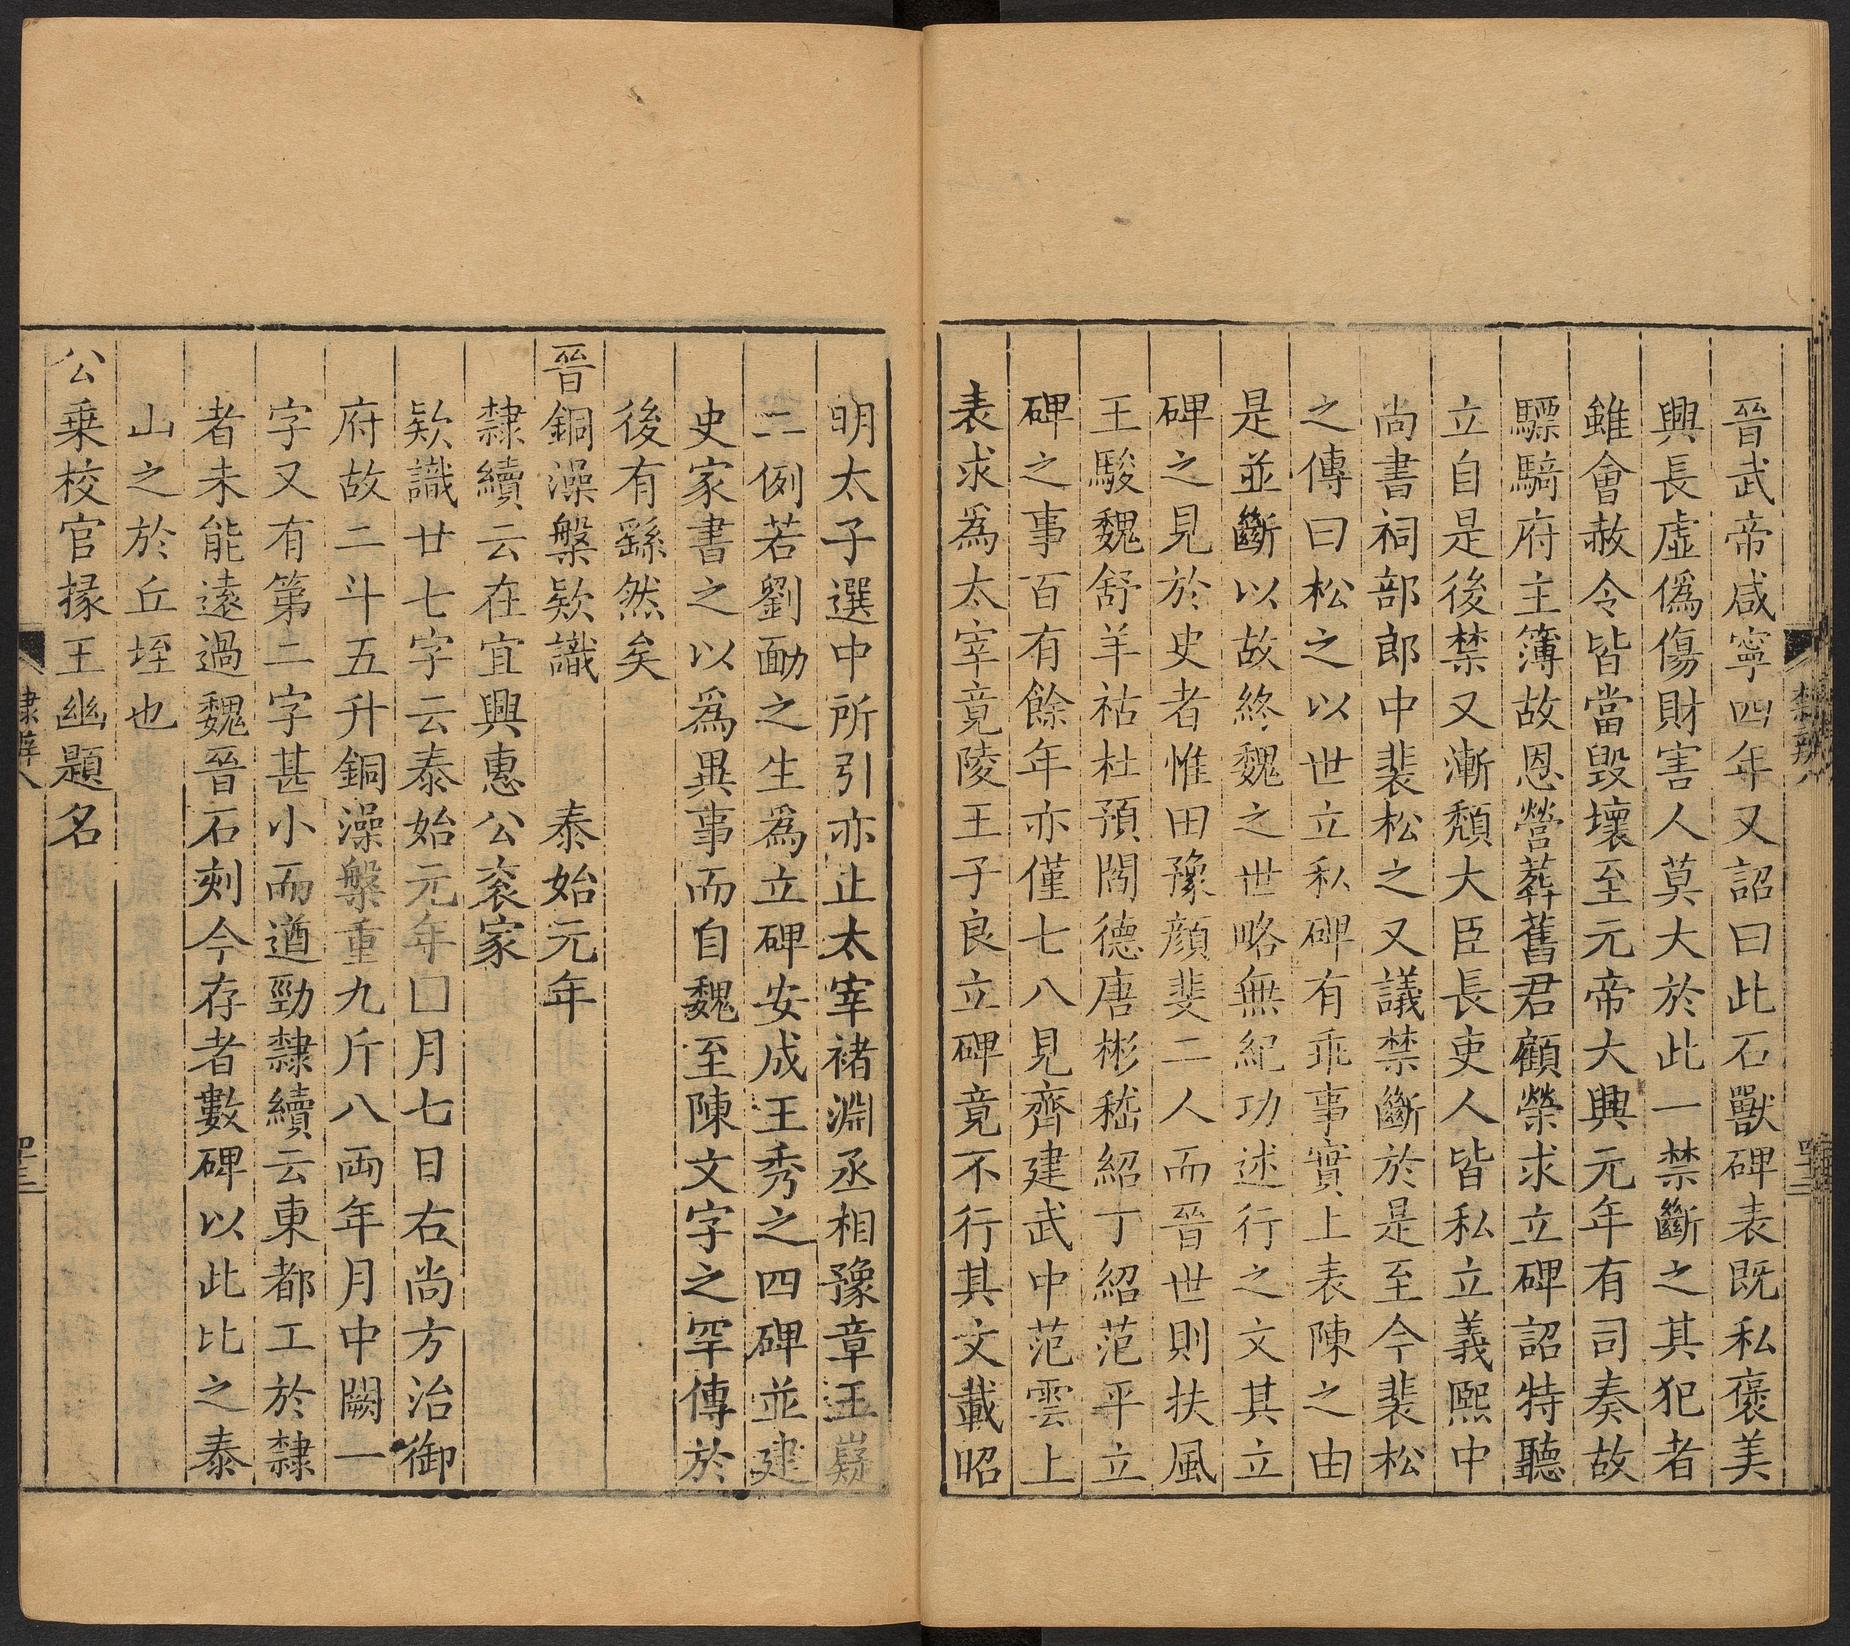 晉武帝咸寧四年又詔曰此石獸碑表既私褒美
興長虛僞傷財害人莫大於此一禁斷之其犯者
雖會赦令皆當毀壞至元帝大興元年有司奏故
驃騎府主簿故恩營葬舊君顧榮求立碑詔特聽
立自是後禁又漸頹大臣長吏人皆私立義熙中
尚書祠部郎中裴松之又議禁斷於是至今裴松
之傳曰松之以世立私碑有乖事實上表陳之由
是並斷以故終魏之世略無紀功述行之文其立
碑之見於史者惟田豫顏斐二人而晉世則扶風
王駿魏舒羊祜杜預閻德唐彬嵇紹丁紹范平立
碑之事百有餘年亦僅七八見齊建武中范雲上
表求爲太宰竟陵王子良立碑竟不行其文載昭
明太子選中所引亦止太宰褚淵丞相豫章王嶷
二例若劉勔之生爲立碑安成王秀之四碑並建
史家書之以爲異事而自魏至陳文字之罕傳於
後有繇然矣
晉銅澡槃欵識 泰始元年
隸續云在宜興惠公袞家
欵識廿七字云泰始元年囗月七日右尚方治御
府故二斗五升銅澡槃重九斤八兩年月中闕一
字又有第二字甚小而遒勁隸續云東都工於隸
者未能遠過魏晉石刻今存者數碑以此比之泰
山之於丘垤也
公乗校官掾王幽題名
隸辨八